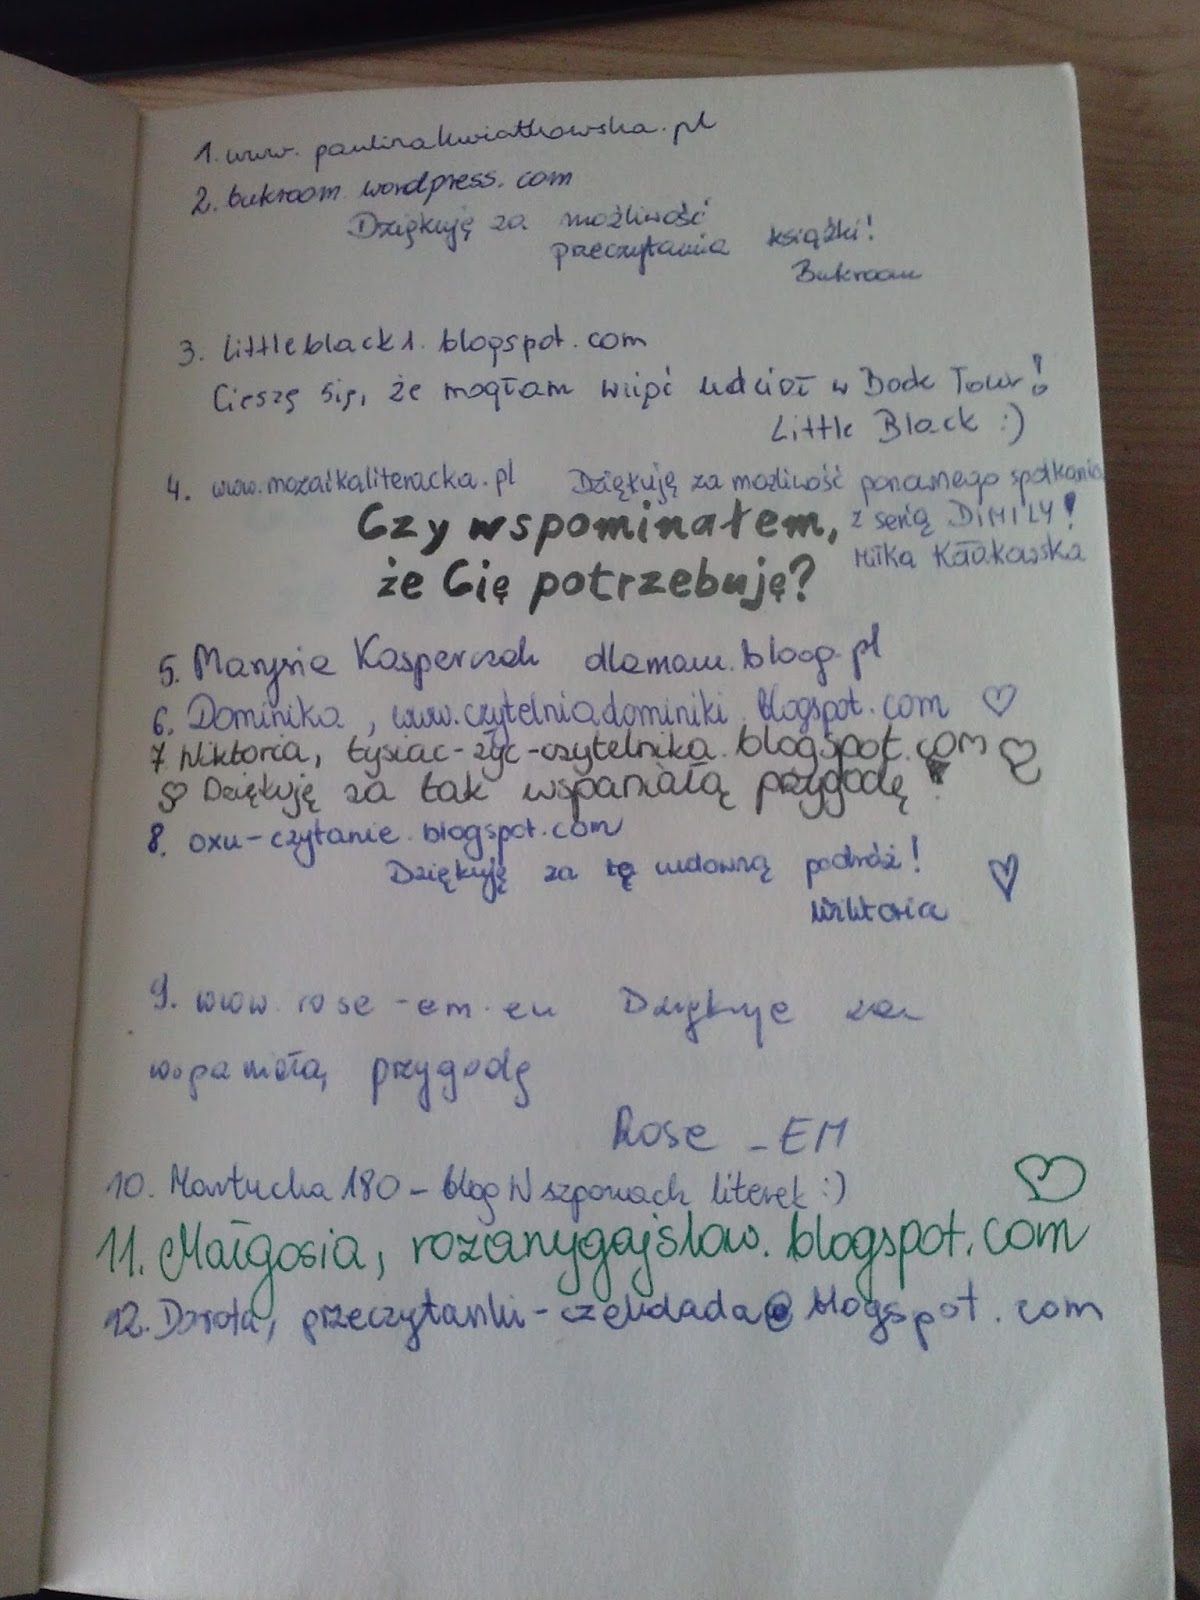 1. www. paulinakwiatkowska.pl
2. bukroom wordpress.com
Dziękuję za możliwość
przeczytania książki!
Bukroom
3. Littleblack1. blogspot.com
Cieszę się, że mogłam wziąć udział w Book Tour!
Little Black :)
4. www.mozaikaliteracka.pl Dziękuję za możliwość ponownego spotkania
z serią DIMILY!
Czy wspominałem,
że Cię potrzebuję?
5. Marysia Kasperczak dlamam.bloog.pl
6. Dominika, www.czytelniadominiki.blogspot.com ♡
7 Wiktoria, tysiac-zyc-czytelnika.blogspot.com ♡
♡ Dziękuję za tak wspaniałą przygodę!
8. oxu-czytanie.blogspot.com
Dziękuję za tę cudowną podróż! ♡
Wiktoria
9. www.rose-em.eu Dziękuje za
wspaniałą przygodę
Rose_EM
10. Martucha180 - blog W szponach literek :)
11. Małgosia, rozanygajslow.blogspot.com ♡
12. Dorota, przeczytanki-czekolada@blogspot.com